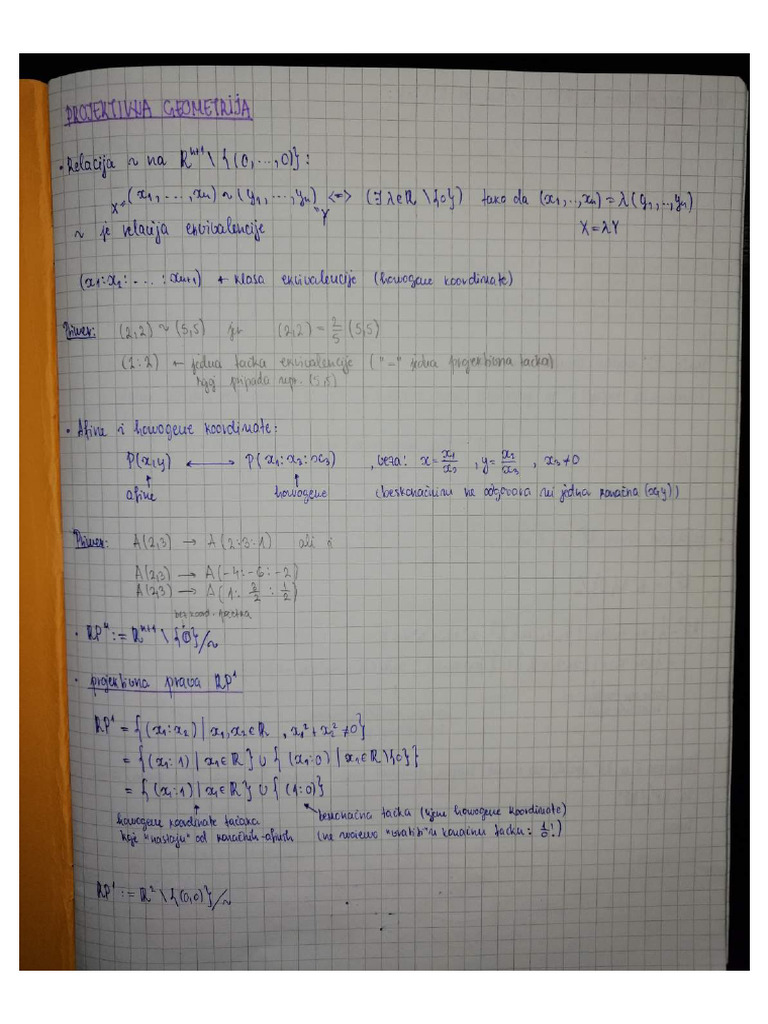 PROJEKTIVNA GEOMETRIJA
• Relacija ~ na ℝⁿ⁺¹ \ {(0,...,0)}:
X= (x₁,...,xₙ) ~ (y₁,...,yₙ) =Y <=> (∃ λ∈ℝ \ {0}) tako da (x₁,...,xₙ) = λ(y₁,...,yₙ)
X = λY
~ je relacija ekvivalencije
(x₁:x₂: ... :xₙ₊₁) ← klasa ekvivalencije (homogene koordinate)
Primer: (2,2) ~ (5,5) jer (2,2) = 2/5 (5,5)
(2:2) ← jedna tačka ekvivalencije ("–" jedna projektivna tačka)
kojoj pripada npr. (5,5)
• Afine i homogene koordinate:
P(x,y) ⟷ P(x₁:x₂:x₃) , veza: x = x₁/x₃ , y = x₂/x₃ , x₃≠0
↑ afine ↑ homogene (beskonačnim ne odgovara ni jedna konačna (x,y))
Primer: A(2,3) → A(2:3:1) ali i
A(2,3) → A(-4:-6:-2)
A(2,3) → A(1: 3/2 : 1/2)
bez koord. početka
• ℝPⁿ := ℝⁿ⁺¹ \ {0}/~
• projektivna prava ℝP¹
ℝP¹ = {(x₁:x₂) | x₁,x₂∈ℝ , x₁²+x₂²≠0}
= {(x₁:1) | x₁∈ℝ} ∪ {(x₁:0) | x₁∈ℝ\{0}}
= {(x₁:1) | x₁∈ℝ} ∪ {(1:0)}
homogene koordinate tačaka
koje "nastaju" od konačnih-afinih
beskonačna tačka (njene homogene koordinate)
(ne možemo "vratiti" u konačnu tačku: 1/0!)
ℝP¹ := ℝ² \ {(0,0)}/~